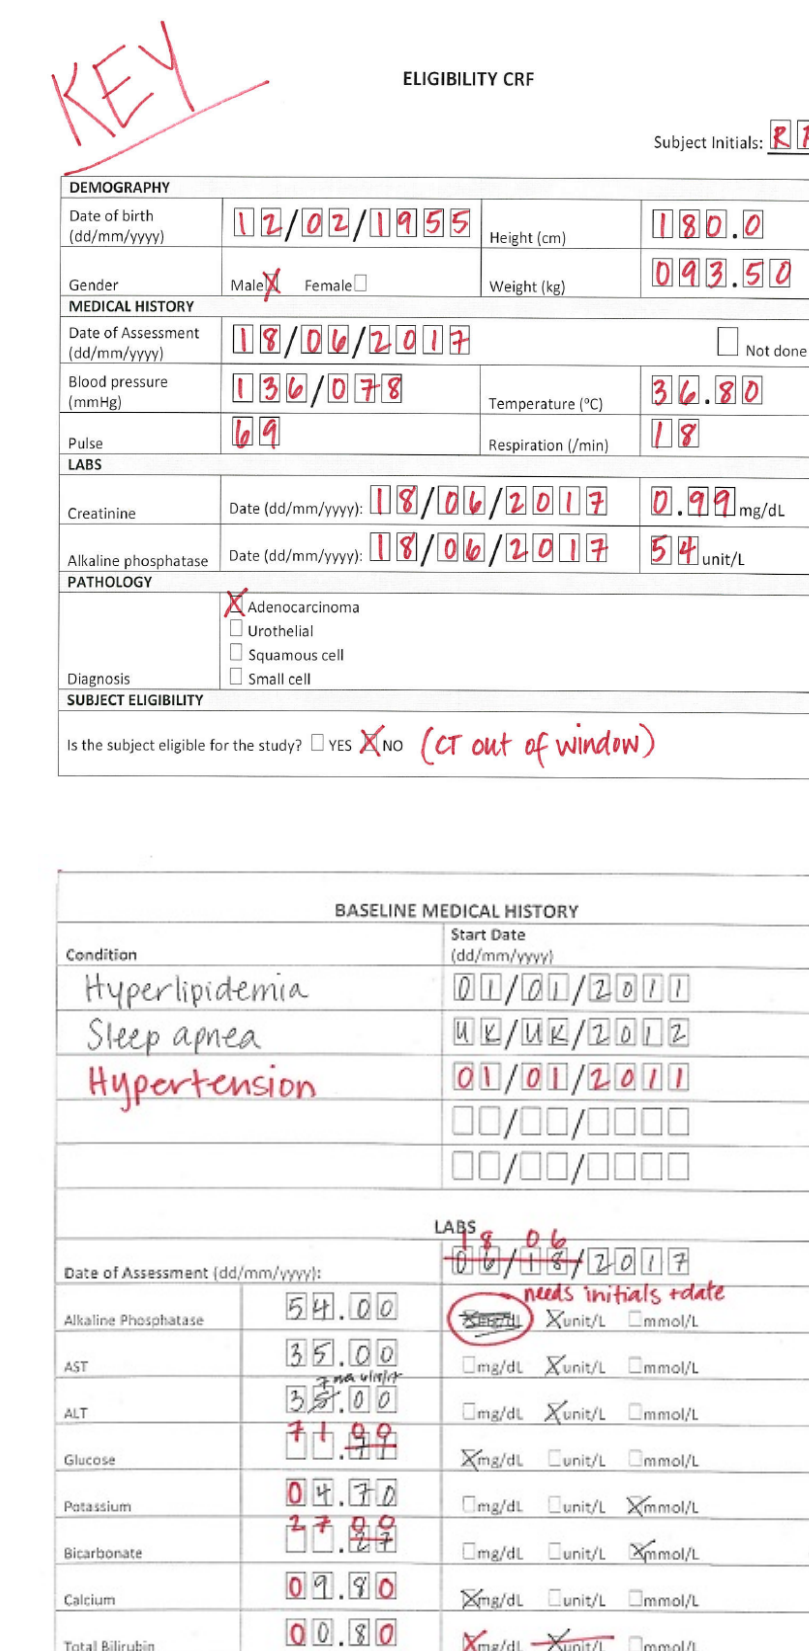 KEY
ELIGIBILITY CRF
Subject Initials: R
DEMOGRAPHY
Date of birth (dd/mm/yyyy) 12/02/1955 Height (cm) 180.0
Gender Male X Female Weight (kg) 093.50
MEDICAL HISTORY
Date of Assessment (dd/mm/yyyy) 18/06/2017 Not done
Blood pressure (mmHg) 136/078 Temperature (°C) 36.80
Pulse 69 Respiration (/min) 18
LABS
Creatinine Date (dd/mm/yyyy): 18/06/2017 0.99 mg/dL
Alkaline phosphatase Date (dd/mm/yyyy): 18/06/2017 54 unit/L
PATHOLOGY
X Adenocarcinoma
Urothelial
Squamous cell
Diagnosis Small cell
SUBJECT ELIGIBILITY
Is the subject eligible for the study? YES X NO (CT out of window)
BASELINE MEDICAL HISTORY
Condition Start Date (dd/mm/yyyy)
Hyperlipidemia 01/01/2011
Sleep apnea UK/UK/2012
Hypertension 01/01/2011
LABS
18 06
Date of Assessment (dd/mm/yyyy): 06/18/2017
needs initials +date
Alkaline Phosphatase 54.00 X unit/L mmol/L
AST 35.00 mg/dL X unit/L mmol/L
7
ALT 35.00 mg/dL X unit/L mmol/L
71 00
Glucose .71 X mg/dL unit/L mmol/L
Potassium 04.70 mg/dL unit/L X mmol/L
27 00
Bicarbonate .27 mg/dL unit/L X mmol/L
Calcium 09.80 X mg/dL unit/L mmol/L
Total Bilirubin 00.80 X mg/dL X unit/L mmol/L